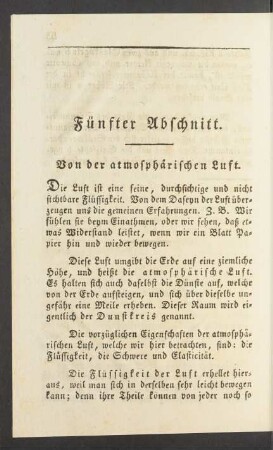 Fünfter Abschnitt.
Von der atmosphärischen Luft.
Die Luft ist eine feine, durchsichtige und nicht
sichtbare Flüssigkeit. Von dem Daseyn der Luft über-
zeugen uns die gemeinen Erfahrungen. Z. B. Wir
fühlen sie beym Einathmen, oder wir sehen, daß et-
was Widerstand leistet, wenn wir ein Blatt Pa-
pier hin und wieder bewegen.
Diese Luft umgibt die Erde auf eine ziemliche
Höhe, und heißt die atmosphärische Luft.
Es halten sich auch daselbst die Dünste auf, welche
von der Erde aufsteigen, und sich über dieselbe un-
gefähr eine Meile erheben. Dieser Raum wird ei-
gentlich der Dunstkreis genannt.
Die vorzüglichen Eigenschaften der atmosphä-
rischen Luft, welche wir hier betrachten, sind: die
Flüssigkeit, die Schwere und Elasticität.
Die Flüssigkeit der Luft erhellet hier-
aus, weil man sich in derselben sehr leicht bewegen
kann; denn ihre Theile können von jeder noch so